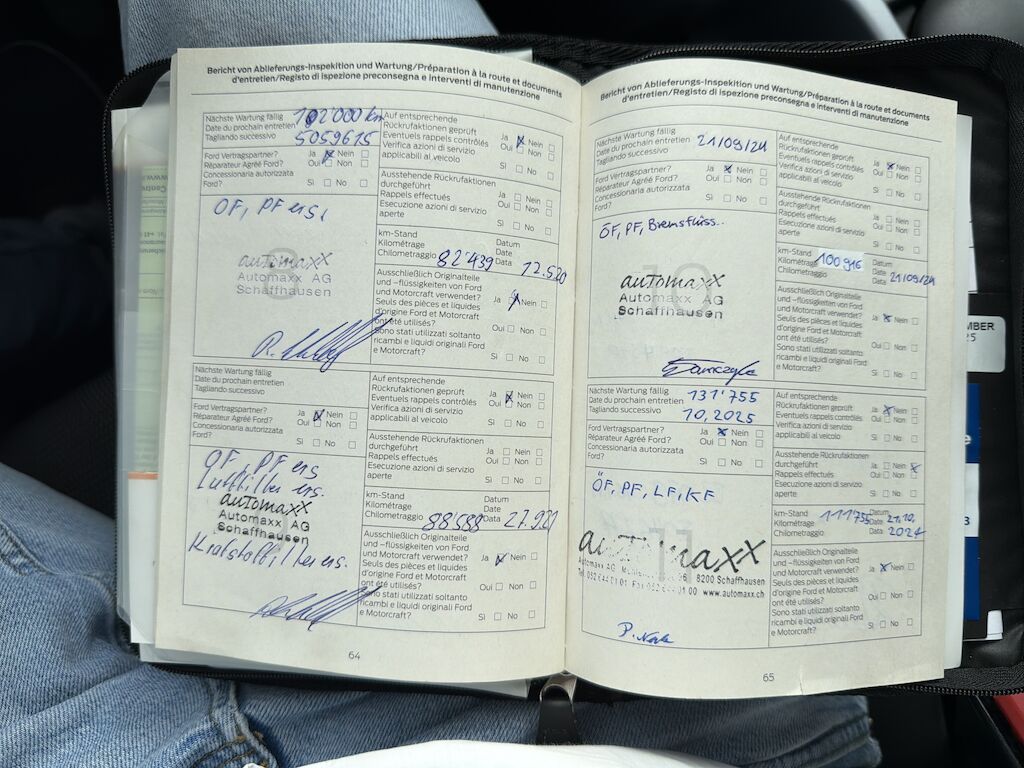 Bericht von Ablieferungs-Inspektion und Wartung/Préparation à la route et documents
d'entretien/Registo di ispezione preconsegna e interventi di manutenzione
Nächste Wartung fällig 102'000 km
Date du prochain entretien
Tagliando successivo
Ford Vertragspartner? Ja Nein
Réparateur Agréé Ford? Oui Non
Concessionaria autorizzata
Ford? Sì No
ÖF, PF ers,
6
automaxx
Automaxx AG
Schaffhausen
Auf entsprechende
Rückrufaktionen geprüft Ja Nein
Eventuels rappels contrôlés Oui Non
Verifica azioni di servizio
applicabili al veicolo Sì No
Ausstehende Rückrufaktionen
durchgeführt Ja Nein
Rappels effectués Oui Non
Esecuzione azioni di servizio
aperte Sì No
km-Stand Datum
Kilométrage Date
Chilometraggio 82'439 Data 12.5.20
Ausschließlich Originalteile
und –flüssigkeiten von Ford
und Motorcraft verwendet? Ja Nein
Seuls des pièces et liquides
d'origine Ford et Motorcraft
ont été utilisés? Oui Non
Sono stati utilizzati soltanto
ricambi e liquidi originali Ford
e Motorcraft? Sì No
Nächste Wartung fällig
Date du prochain entretien
Tagliando successivo
Ford Vertragspartner? Ja Nein
Réparateur Agréé Ford? Oui Non
Concessionaria autorizzata
Ford? Sì No
ÖF, PF ers
Luftfilter ers.
automaxx
Automaxx AG
Schaffhausen
Kraftstoffilter ers.
Auf entsprechende
Rückrufaktionen geprüft Ja Nein
Eventuels rappels contrôlés Oui Non
Verifica azioni di servizio
applicabili al veicolo Sì No
Ausstehende Rückrufaktionen
durchgeführt Ja Nein
Rappels effectués Oui Non
Esecuzione azioni di servizio
aperte Sì No
km-Stand Datum
Kilométrage Date
Chilometraggio 88'588 Data
Ausschließlich Originalteile
und –flüssigkeiten von Ford
und Motorcraft verwendet? Ja Nein
Seuls des pièces et liquides
d'origine Ford et Motorcraft
ont été utilisés? Oui Non
Sono stati utilizzati soltanto
ricambi e liquidi originali Ford
e Motorcraft? Sì No
64
Bericht von Ablieferungs-Inspektion und Wartung/Préparation à la route et documents
d'entretien/Registo di ispezione preconsegna e interventi di manutenzione
Nächste Wartung fällig
Date du prochain entretien 21/09/24
Tagliando successivo
Ford Vertragspartner? Ja Nein
Réparateur Agréé Ford? Oui Non
Concessionaria autorizzata
Ford? Sì No
ÖF, PF, Bremsflüss..
10
automaxx
Automaxx AG
Schaffhausen
Auf entsprechende
Rückrufaktionen geprüft Ja Nein
Eventuels rappels contrôlés Oui Non
Verifica azioni di servizio
applicabili al veicolo Sì No
Ausstehende Rückrufaktionen
durchgeführt Ja Nein
Rappels effectués Oui Non
Esecuzione azioni di servizio
aperte Sì No
km-Stand Datum
Kilométrage 100916 Date
Chilometraggio Data 21/09/21
Ausschließlich Originalteile
und –flüssigkeiten von Ford
und Motorcraft verwendet? Ja Nein
Seuls des pièces et liquides
d'origine Ford et Motorcraft
ont été utilisés? Oui Non
Sono stati utilizzati soltanto
ricambi e liquidi originali Ford
e Motorcraft? Sì No
Nächste Wartung fällig 131'755
Date du prochain entretien
Tagliando successivo 10, 2025
Ford Vertragspartner? Ja Nein
Réparateur Agréé Ford? Oui Non
Concessionaria autorizzata
Ford? Sì No
ÖF, PF, LF, KF
automaxx
Automaxx AG 8200 Schaffhausen
www.automaxx.ch
Auf entsprechende
Rückrufaktionen geprüft Ja Nein
Eventuels rappels contrôlés Oui Non
Verifica azioni di servizio
applicabili al veicolo Sì No
Ausstehende Rückrufaktionen
durchgeführt Ja Nein
Rappels effectués Oui Non
Esecuzione azioni di servizio
aperte Sì No
km-Stand 111'755 Datum
Kilométrage Date 21.10.
Chilometraggio Data 2024
Ausschließlich Originalteile
und –flüssigkeiten von Ford
und Motorcraft verwendet? Ja Nein
Seuls des pièces et liquides
d'origine Ford et Motorcraft
ont été utilisés? Oui Non
Sono stati utilizzati soltanto
ricambi e liquidi originali Ford
e Motorcraft? Sì No
65